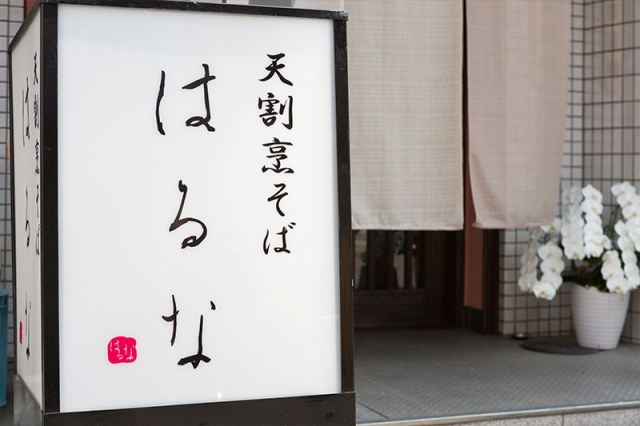 天割烹そば
はるな
はるな
天割烹そば
はるな